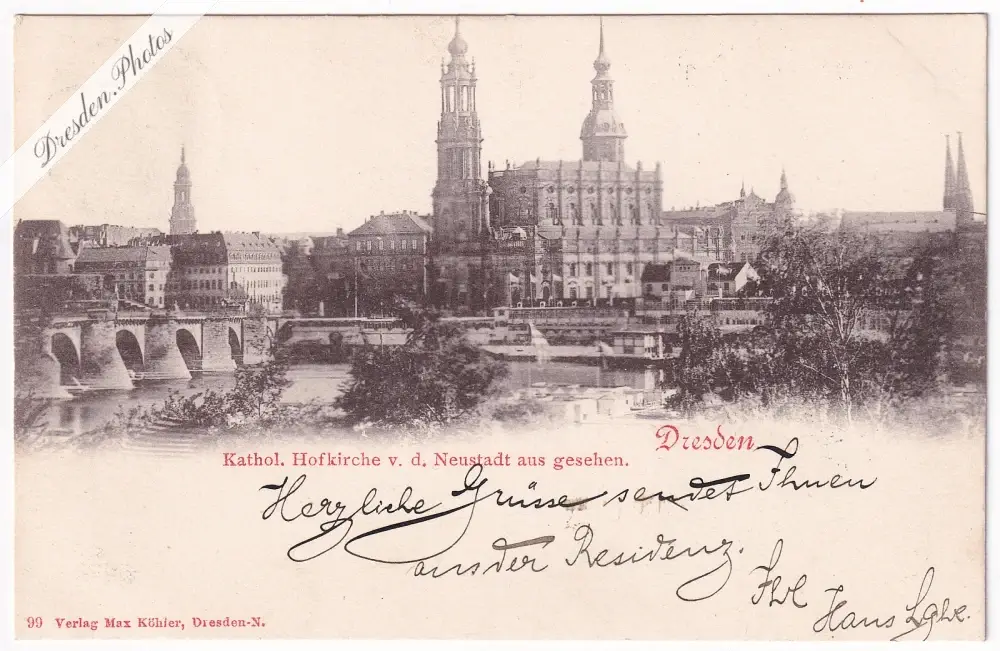 Dresden.Photos
Dresden
Kathol. Hofkirche v. d. Neustadt aus gesehen.
Herzliche Grüsse sendet Ihnen
aus der Residenz.
Hans
99 Verlag Max Köhler, Dresden-N.